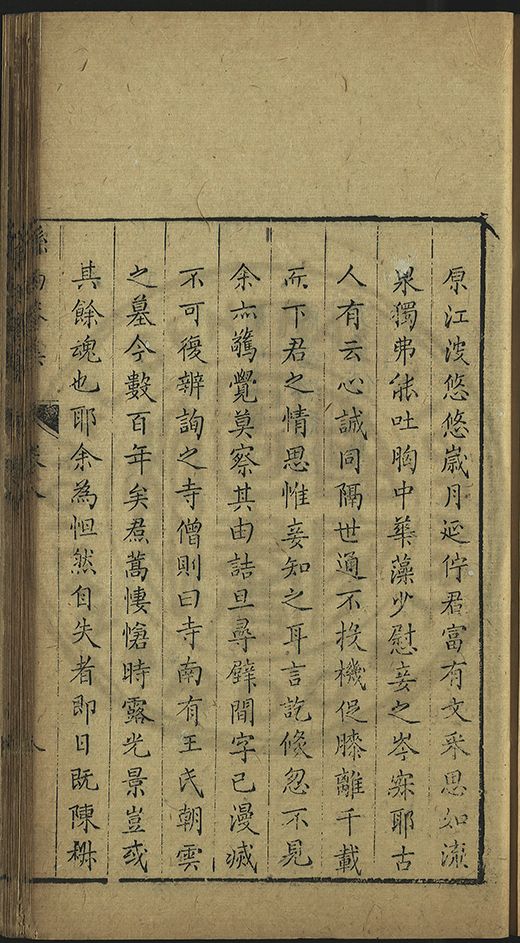 原江波悠悠歲月延佇君富有文采思如湧
泉獨弗能吐胸中華藻少慰妾之岑寂耶古
人有云心誠同隔世通不投機促膝離千載
而下君之情思惟妾知之耳言訖倐忽不見
余亦驚覺莫察其由詰旦尋壁間字已漫滅
不可復辨詢之寺僧則曰寺南有王氏朝雲
之墓今數百年矣焄蒿悽愴時露光景豈或
其餘魂也耶余為怛然自失者即日既陳
孫西菴集 卷八 八